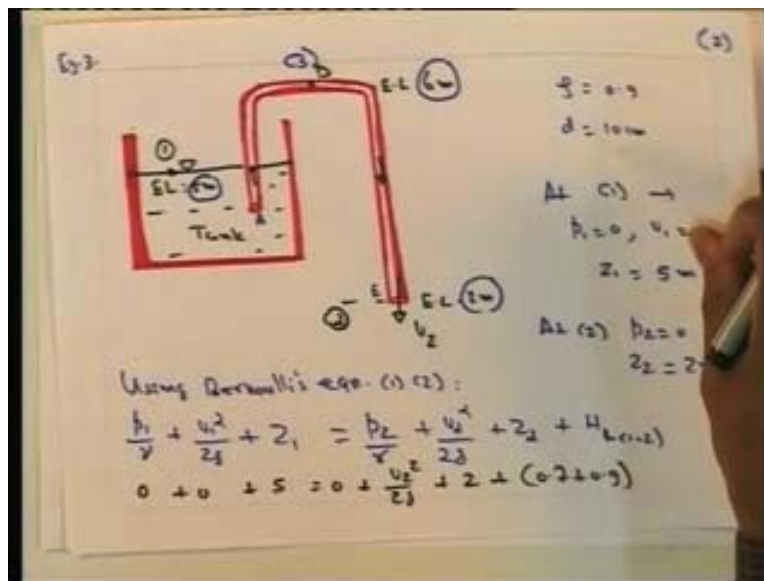 (2)
Eg. 3.
(3)
E.L 6m
ρ = 0.9
d = 10 cm
(1)
EL = 5m
Tank
A
At (1) →
p₁=0, v₁=
Z₁ = 5m
E
E.L. 2m
(2)
V₂
At (2) p₂=0
Z₂ = 2
Using Bernoulli's eqn. (1) (2):
p₁/γ + v₁²/2g + Z₁ = p₂/γ + v₂²/2g + Z₂ + H_L(1-2)
0 + 0 + 5 = 0 + v₂²/2g + 2 + (0.7+0.9)